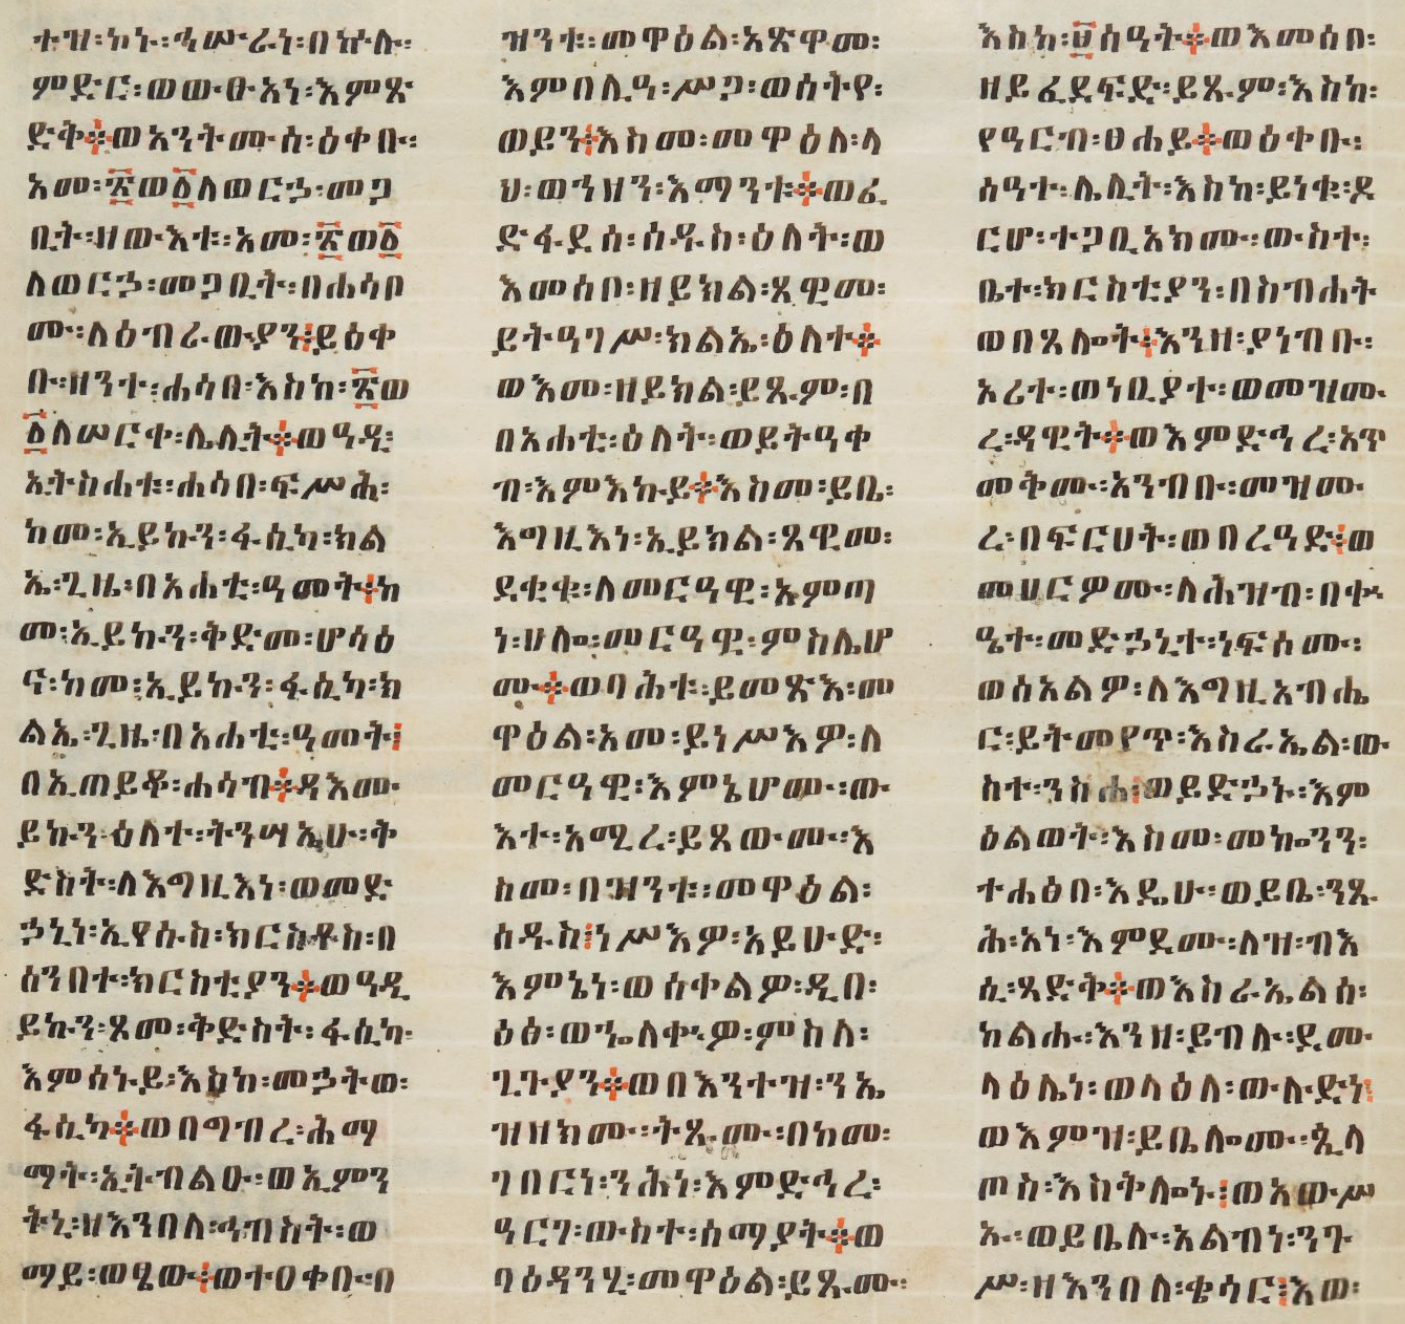 ተዝ፡ኮኑ፡ኄሡራነ፡በኵሉ፡
ምድር፡ወውፁአነ፡እምጽ
ድቅ፨ወአንትሙሰ፡ዕቀቡ፡
አመ፡፳ወ፭ለወርኃ፡መጋ
ቢት፡ዘውእቱ፡አመ፡፳ወ፭
ለወርኃ፡መጋቢት፡በሐሳቦ
ሙ፡ለዕብራውያን፤ይዕቀ
ቡ፡ዘንተ፡ሐሳበ፡እስከ፡፳ወ
፭ለሠርቀ፡ሌሊት፨ወዓዲ፡
ኢትስሐቱ፡ሐሳበ፡ፍሥሕ፡
ከመ፡ኢይኩን፡ፋሲካ፡ክል
ኤ፡ጊዜ፡በአሐቲ፡ዓመት፨ከ
መ፡ኢይኩን፡ቅድመ፡ሆሳዕ
ና፡ከመ፡ኢይኩን፡ፋሲካ፡ክ
ልኤ፡ጊዜ፡በአሐቲ፡ዓመት፤
በኢጠይቆ፡ሐሳብ፨ዳእሙ
ይኩን፡ዕለተ፡ትንሣኤሁ፡ቅ
ድስት፡ለእግዚእነ፡ወመድ
ኃኒነ፡ኢየሱስ፡ክርስቶስ፡በ
ሰንበተ፡ክርስቲያን፨ወዓዲ
ይኩን፡ጾመ፡ቅድስት፡ፋሲካ
እምሰኑይ፡እስከ፡መኃትወ፡
ፋሲካ፨ወበግብረ፡ሕማ
ማት፡ኢትብልዑ፡ወኢምን
ትኒ፡ዘእንበለ፡ኅብስት፡ወ
ማይ፡ወፄው፨ወተዐቀቡ፡በ
ዝንቱ፡መዋዕል፡አጽዋመ፡
እምበሊዓ፡ሥጋ፡ወሰትየ፡
ወይን፤እስመ፡መዋዕለ፡ላ
ህ፡ወኀዘን፡እማንቱ፨ወፈ
ድፋደሰ፡ሰዱስ፡ዕለት፡ወ
እመሰቦ፡ዘይክል፡ጸዊመ፡
ይትዓገሥ፡ክልኤ፡ዕለተ፨
ወእመ፡ዘይክል፡ይጹም፡በ
በአሐቲ፡ዕለት፡ወይትዓቀ
ብ፡እምእኩይ፨እስመ፡ይቤ፡
እግዚእነ፡ኢይክል፡ጸዊመ፡
ደቂቁ፡ለመርዓዊ፡አምጣ
ነ፡ሀሎ፡መርዓዊ፡ምስሌሆ
ሙ፨ወባሕቱ፡ይመጽእ፡መ
ዋዕል፡አመ፡ይነሥእዎ፡ለ
መርዓዊ፡እምኔሆሙ፡ው
እተ፡አሚረ፡ይጸውሙ፡እ
ስመ፡በዝንቱ፡መዋዕል፡
ሰዱስ፤ነሥእዎ፡አይሁድ፡
እምኔነ፡ወሰቀልዎ፡ዲበ፡
ዕፅ፡ወኈለቀዎ፡ምስለ፡
ጊጉያን፨ወበእንተዝ፡ንኤ
ዝዘክሙ፡ትጹሙ፡በከመ፡
ገበርነ፡ንሕነ፡እምድኅረ፡
ዓርገ፡ውስተ፡ሰማያት፨ወ
ባዕዳንሂ፡መዋዕል፡ይጹሙ፡
እስከ፡፱ሰዓት፨ወእመሰቦ፡
ዘይፈደፍድ፡ይጹም፡እስከ፡
የዓርብ፡ፀሐይ፨ወዕቀቡ፡
ሰዓተ፡ሌሊት፡እስከ፡ይነቁ፡ዶ
ርሆ፡ተጋቢአክሙ፡ውስተ፡
ቤተ፡ክርስቲያን፡በስብሐት
ወበጸሎት፤እንዘ፡ያነብቡ፡
ኦሪተ፡ወነቢያተ፡ወመዝሙ
ረ፡ዳዊት፨ወእምድኅረ፡አጥ
መቅሙ፡አንብቡ፡መዝሙ
ረ፡በፍርሀት፡ወበረዓድ፤ወ
መሀርዎሙ፡ለሕዝብ፡በቀ
ዔተ፡መድኃኒተ፡ነፍሰሙ፡
ወሰአልዎ፡ለእግዚአብሔ
ር፡ይትመየጥ፡እስራኤል፡ው
ስተ፡ንስሐ፤ወይድኃኑ፡እም
ዕልወት፡እስመ፡መኰንን፡
ተሐፅበ፡እዴሁ፡ወይቤ፡ንጹ
ሕ፡አነ፡እምደሙ፡ለዝ፡ብእ
ሲ፡ጻድቅ፨ወእስራኤልሰ፡
ከልሑ፡እንዘ፡ይብሉ፡ደሙ
ላዕሌነ፡ወላዕለ፡ውሉድነ፤
ወእምዝ፡ይቤሎሙ፡ጲላ
ጦስ፡እስቅሎኑ፤ወአውሥ
ኡ፡ወይቤሉ፡አልብነ፡ንጉ
ሥ፡ዘእንበለ፡ቄሳር፤እወ፡